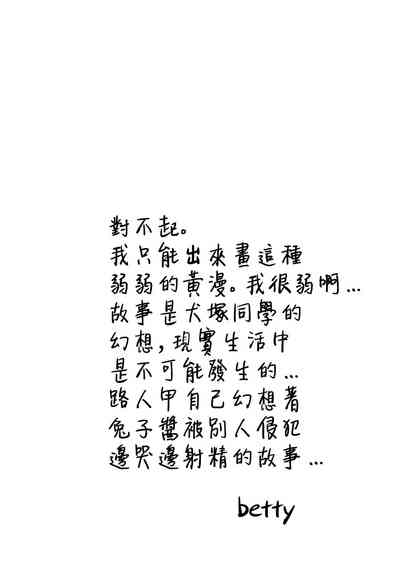 對不起。
我只能出來畫這種
弱弱的黃漫。我很弱啊...
故事是犬塚同學的
幻想,現實生活中
是不可能發生的...
路人甲自己幻想著
兔子醬被別人侵犯
邊哭邊射精的故事...
betty